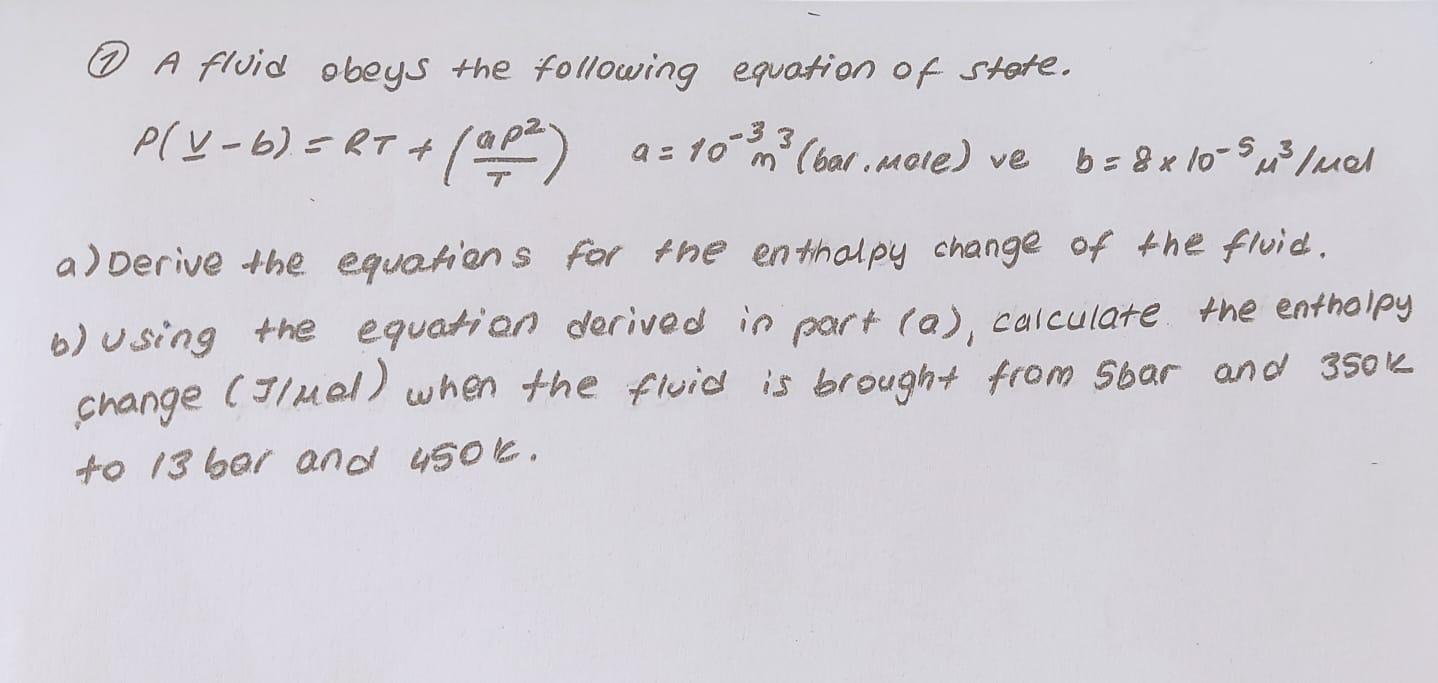 ① A fluid obeys the following equation of state.
P(V̲-b) = RT + (aP²/T) a = 10⁻³ m³ (bar.mole) ve b = 8x10⁻⁵ m³/mol
a) Derive the equations for the enthalpy change of the fluid.
b) Using the equation derived in part (a), calculate the enthalpy
change (J/mol) when the fluid is brought from 5bar and 350K
to 13 bar and 450K.